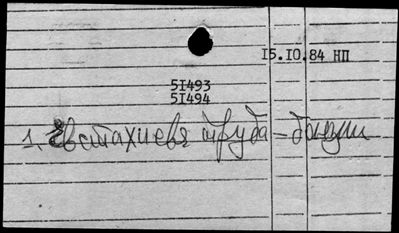 15.10.84 НП
51493
51494
1. Евстахиева труба –